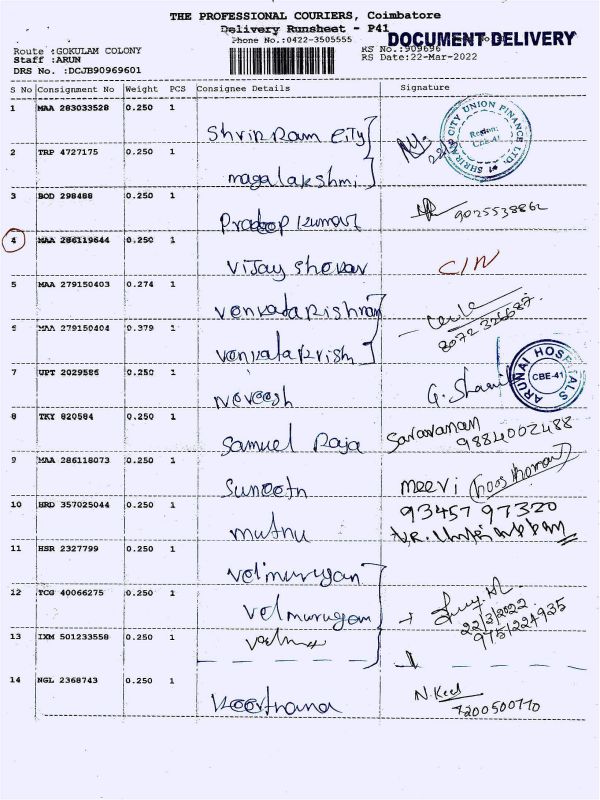 THE PROFESSIONAL COURIERS, Coimbatore
Delivery Runsheet - P41
DOCUMENT DELIVERY
Phone No.:0422-3505555
Route :GOKULAM COLONY
RS No.:909696
Staff :ARUN
RS Date:22-Mar-2022
DRS No. :DCJB90969601
S No Consignment No Weight PCS Consignee Details Signature
1 MAA 283033528 0.250 1
Shrir Ram City
22/3
SHRIRAM CITY UNION FINANCE LTD.
Region:
CBE-41
2 TRP 4727175 0.250 1
magalakshmi
3 BOD 298488 0.250 1
Pradeep Kumar 9025538862
4 MAA 286119644 0.250 1
Vijay Shekar C/N
5 MAA 279150403 0.274 1
8072326687
6 MAA 279150404 0.379 1
Venkatakrish
7 UPT 2029586 0.250 1
G. Sharil
ARUNAI HOSPITALS
CBE-41
8 TKY 820584 0.250 1
Samuel Raja Saravanan
9884002488
9 MAA 286118073 0.250 1
Meevi
10 HRD 357025044 0.250 1
muthu
93457 97320
11 HSR 2327799 0.250 1
Velmurugan
12 TCG 40066275 0.250 1
Velmurugan
22/3/2022
9751224935
13 IXM 501233558 0.250 1
14 NGL 2368743 0.250 1
Keerthana
7200500770